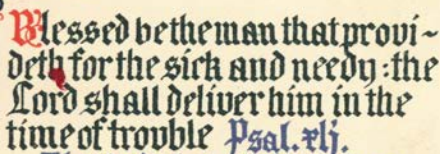 Blessed be the man that provi~
deth for the sick and needy : the
Lord shall deliver him in the
time of trouble Psal. xlj.